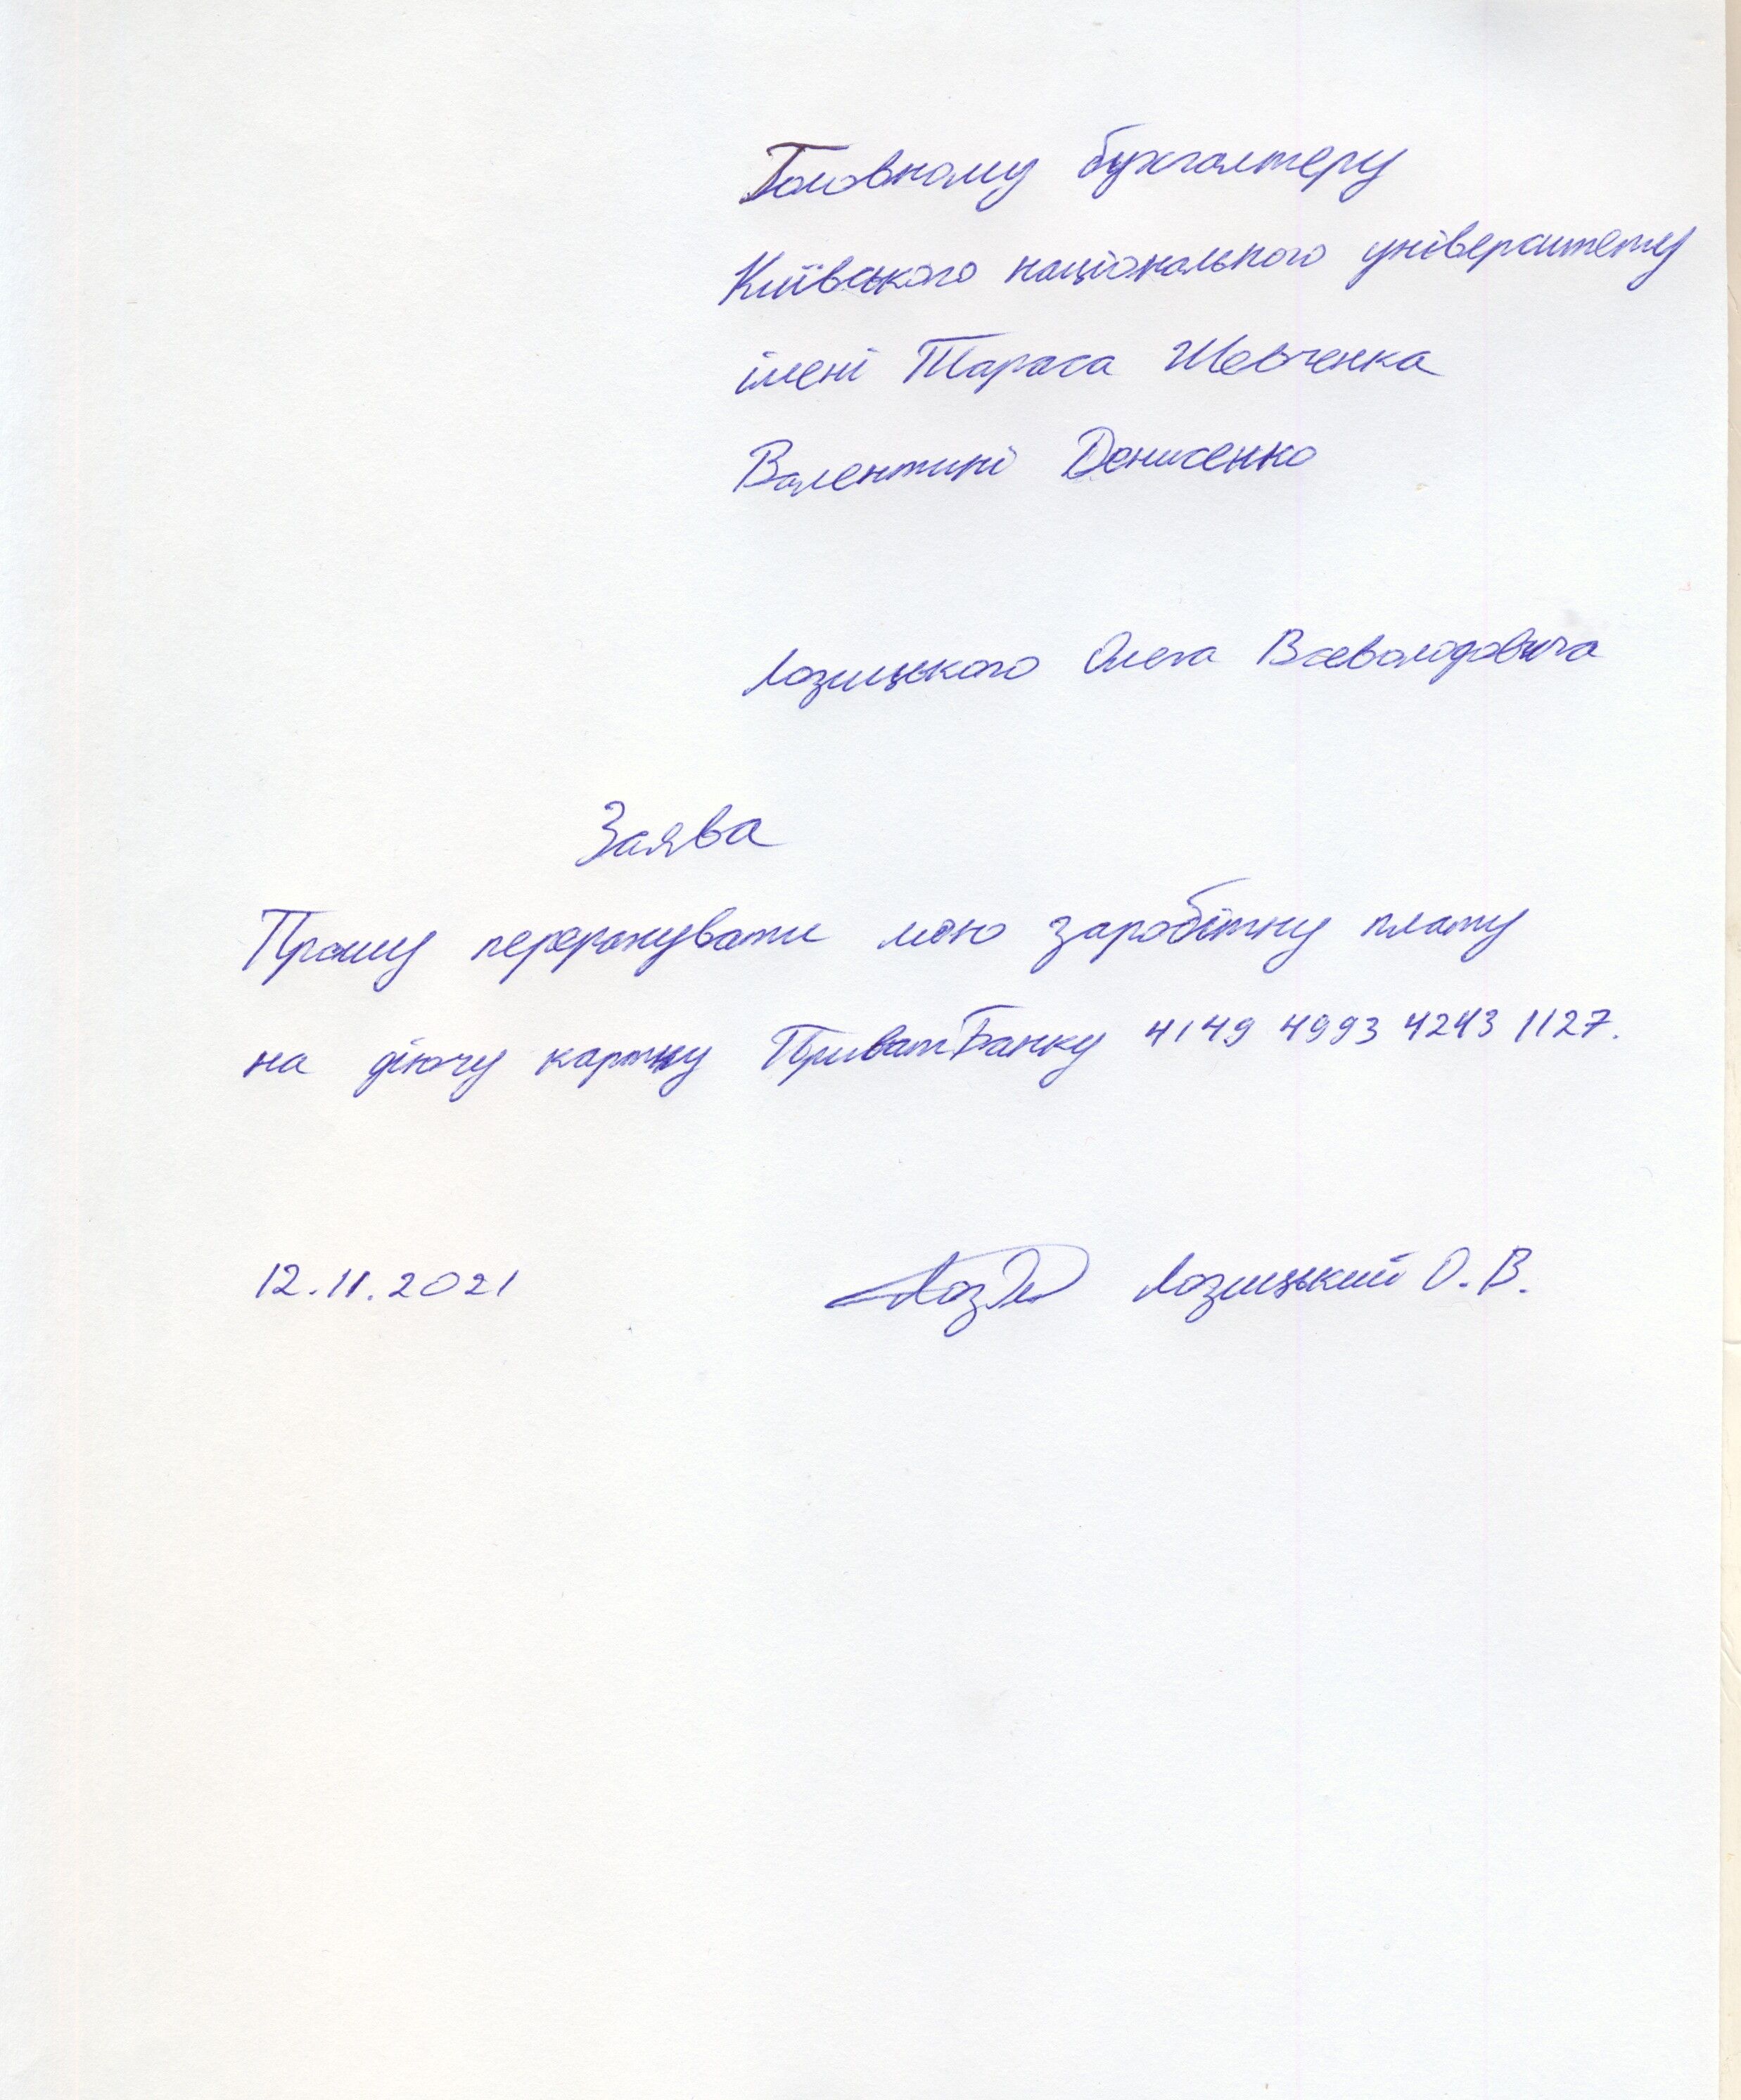 Головному бухгалтеру
Київського національного університету
імені Тараса Шевченка
Валентині Денисенко
Лозицького Олега Всеволодовича
Заява
Прошу перерахувати мою заробітну плату
на діючу картку ПриватБанку 4149 4993 4243 1127.
12.11.2021 Лозицький О. В.